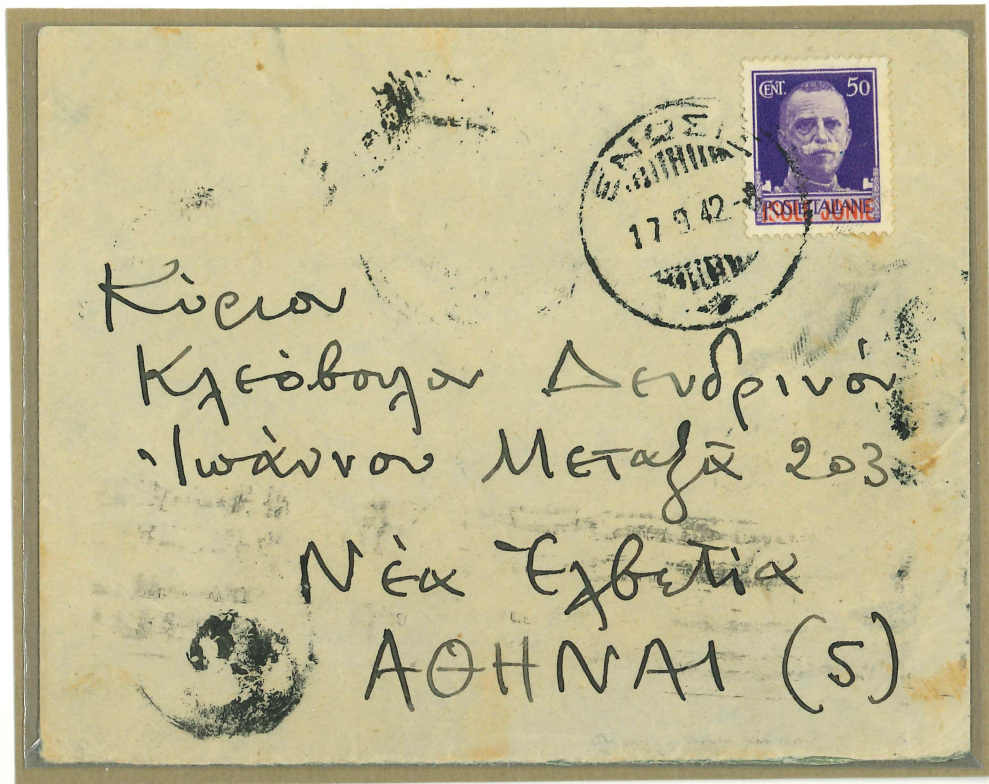 CENT. 50
POSTE ITALIANE
ISOLE JONIE
17 9 42
Κύριον
Κλεόβουλον Δενδρινόν
Ἰωάννου Μεταξᾶ 203
Νέα Ἑλβετία
ΑΘΗΝΑΙ (5)